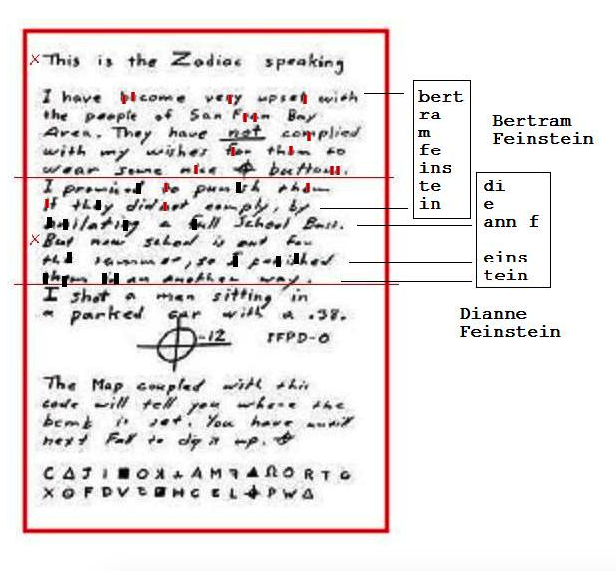 This is the Zodiac speaking
I have become very upset with
the people of San Fran Bay
Area. They have not complied
with my wishes for them to
wear some nice ⌖ buttons.
I promised to punish them
if they did not comply, by
anilating a full School Buss.
But now school is out for
the summer, so I punished
them in an another way.
I shot a man sitting in
a parked car with a .38.
⌖-12 SFPD-0
The Map coupled with this
code will tell you where the
bomb is set. You have untill
next Fall to dig it up. ⌖
C Δ J I ■ O A M ▲ Ω O R T G
X O F D V H C E L ⌖ P W Δ
bert
ra
m
fe
ins
te
in
Bertram
Feinstein
di
e
ann f
eins
tein
Dianne
Feinstein